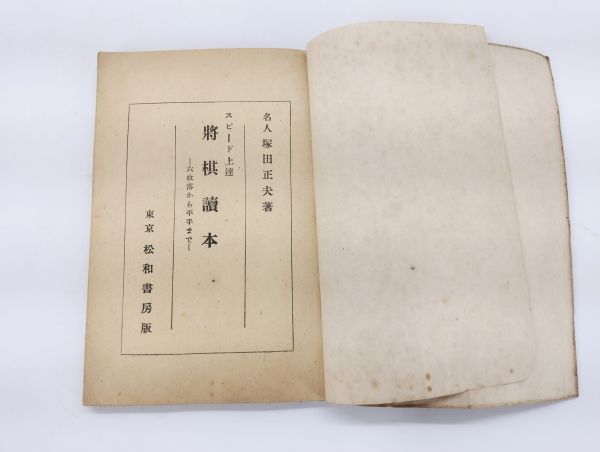 名人 塚田正夫著
スピード上達
將棋讀本
―六枚落から平手まで―
東京 松和書房版